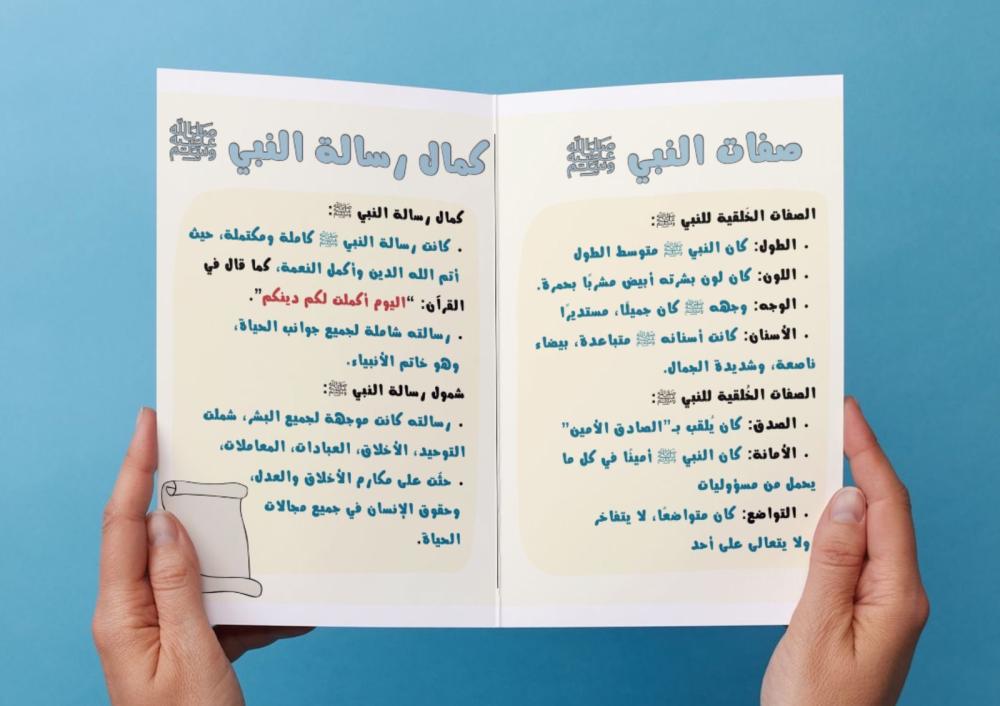 صفات النبي ﷺ
الصفات الخَلقية للنبي ﷺ:
• الطول: كان النبي ﷺ متوسط الطول
• اللون: كان لون بشرته أبيض مشربًا بحمرة.
• الوجه: وجهه ﷺ كان جميلًا، مستديرًا
• الأسنان: كانت أسنانه ﷺ متباعدة، بيضاء
ناصعة، وشديدة الجمال.
الصفات الخُلقية للنبي ﷺ:
• الصدق: كان يُلقب بـ"الصادق الأمين"
• الأمانة: كان النبي ﷺ أمينًا في كل ما
يحمل من مسؤوليات
• التواضع: كان متواضعًا، لا يتفاخر
ولا يتعالى على أحد
كمال رسالة النبي ﷺ
كمال رسالة النبي ﷺ:
• كانت رسالة النبي ﷺ كاملة ومكتملة، حيث
أتم الله الدين وأكمل النعمة، كما قال في
القرآن: "اليوم أكملت لكم دينكم".
• رسالته شاملة لجميع جوانب الحياة،
وهو خاتم الأنبياء.
شمول رسالة النبي ﷺ:
• رسالته كانت موجهة لجميع البشر، شملت
التوحيد، الأخلاق، العبادات، المعاملات،
• حثّت على مكارم الأخلاق والعدل،
وحقوق الإنسان في جميع مجالات
الحياة.